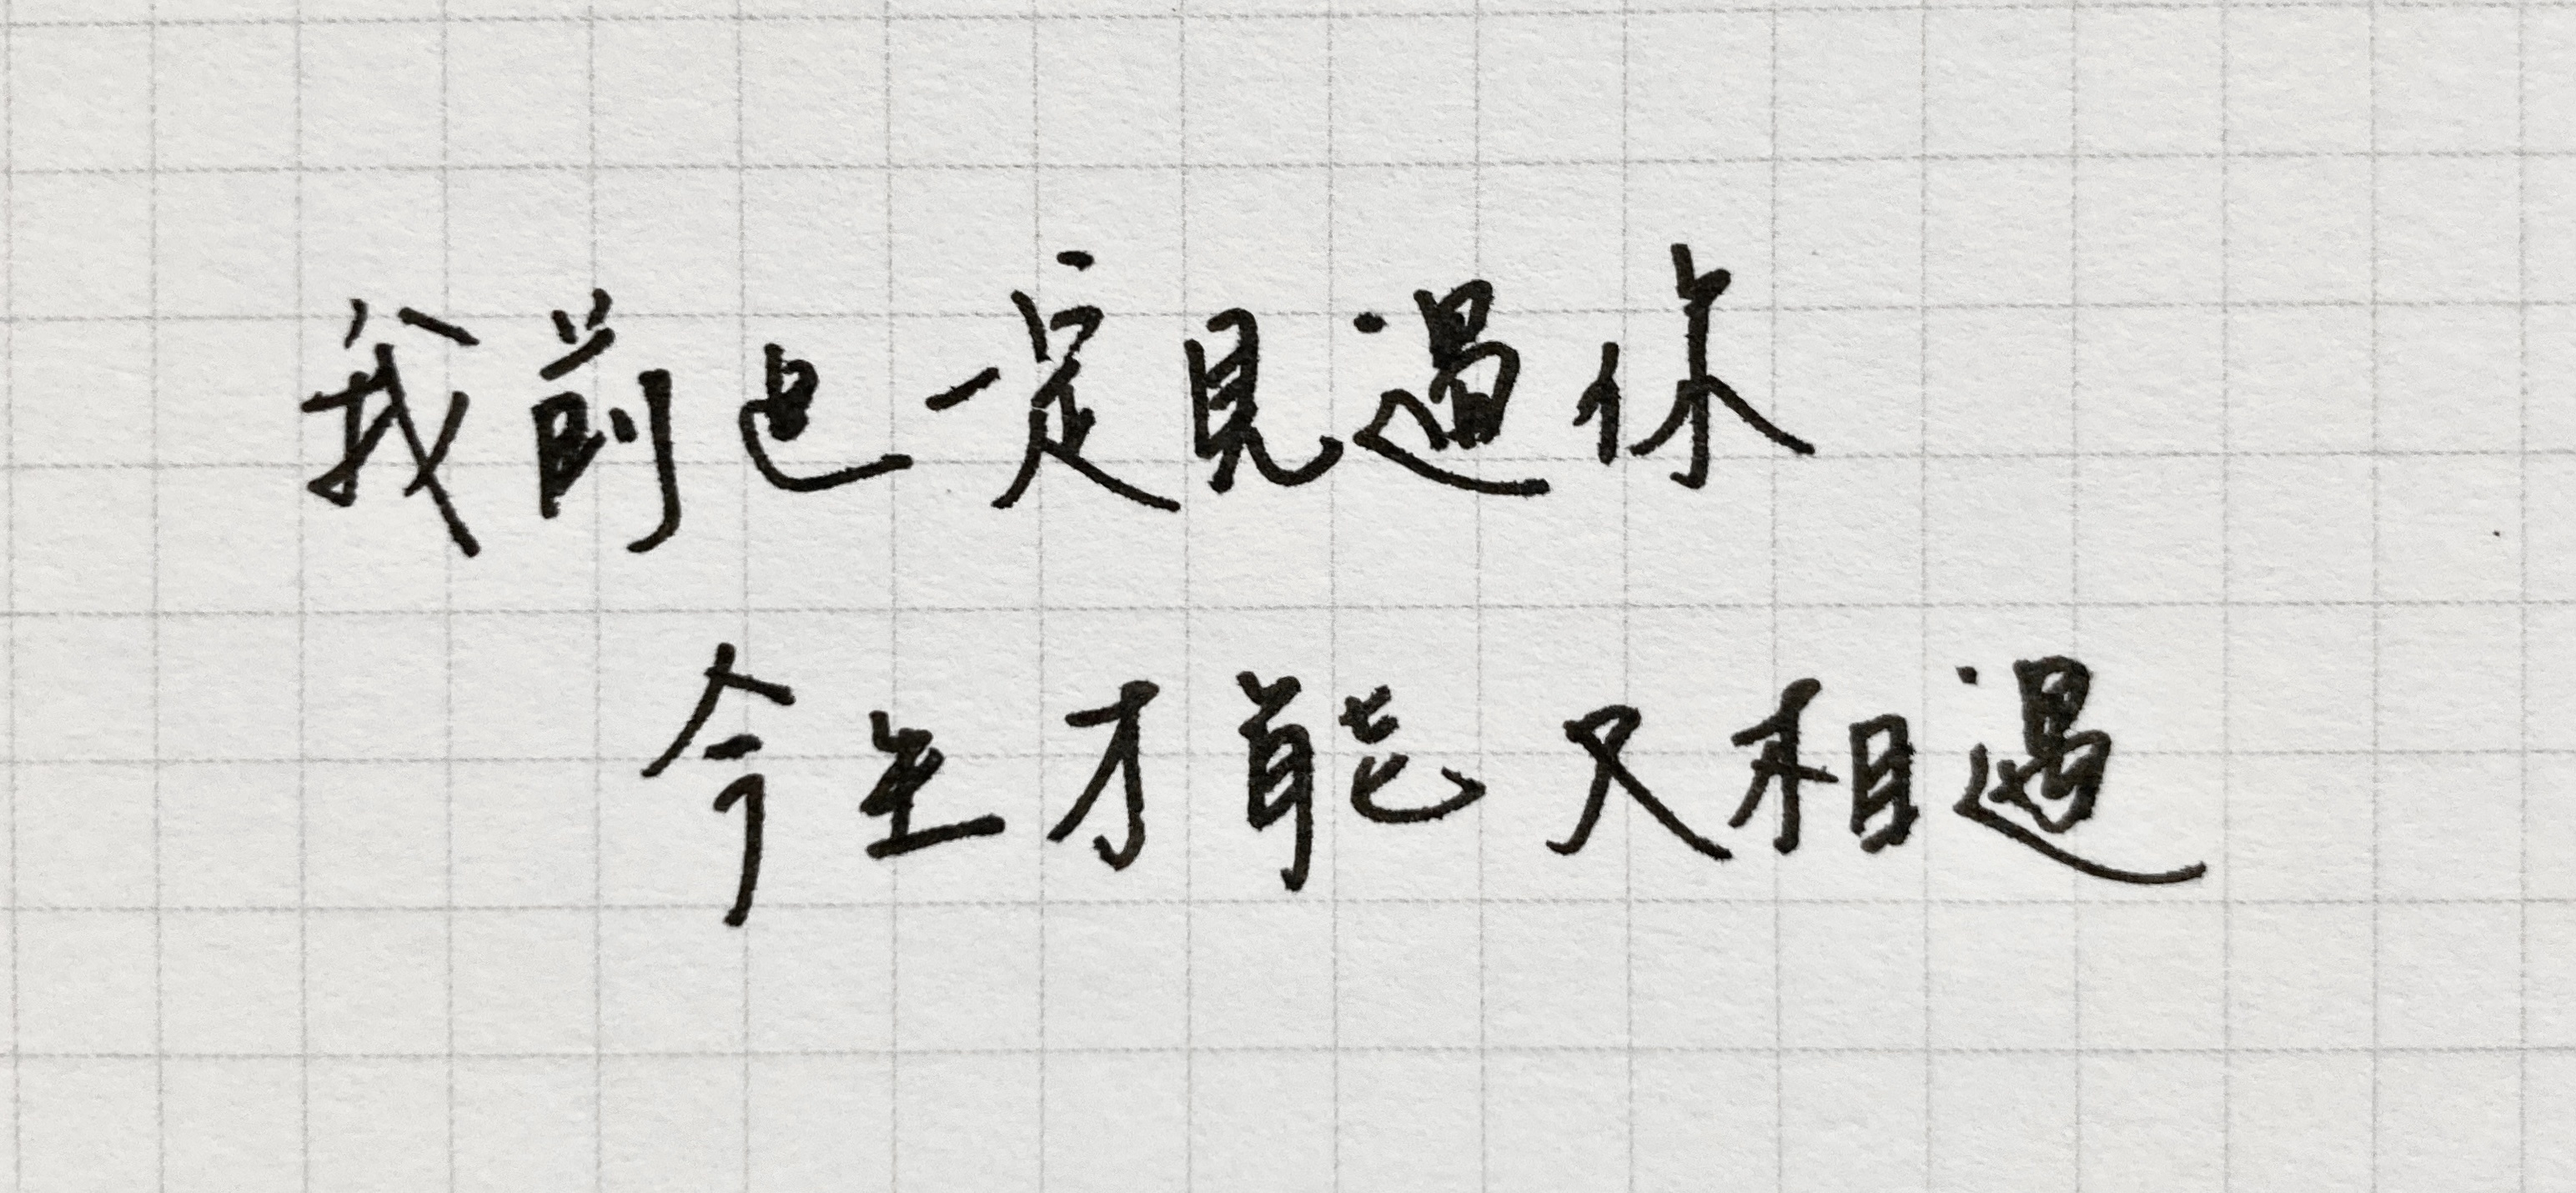 我前世一定見過你
今生才能又相遇